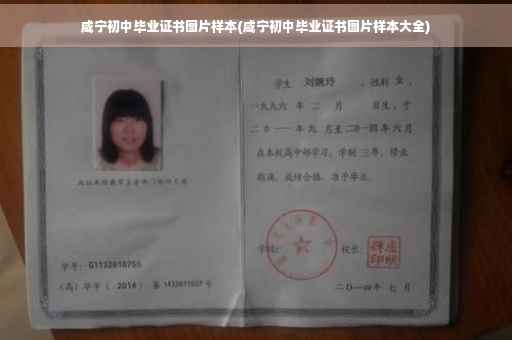 咸宁初中毕业证书图片样本(咸宁初中毕业证书图片样本大全)
学生 刘婉玲 ,性别 女 ,
一九九六 年 二 月 日生,于
二〇一一 年 九 月至 二〇一四 年 六 月
在本校高中部学习,学制 三 年,修业
期满,成绩合格,准予毕业。
学校: 校长:
学号: G1132010755
(高)毕字( 2014 )第 1432011027 号
二〇一四 年 七 月